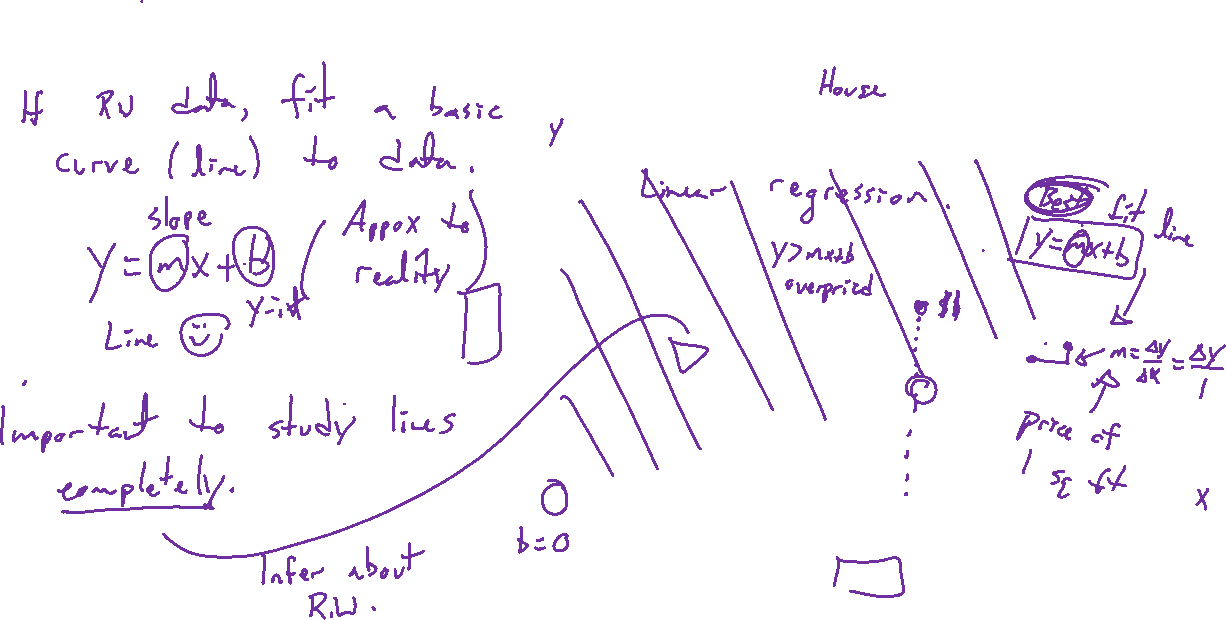 If RW data, fit a basic
curve (line) to data.
slope
y = mx + b
y-int
(Appox to
reality)
Line
Important to study lines
completely.
Infer about
R.W.
House
y
Linear regression.
y > mx+b
overpriced
$$
Best fit line
y = mx+b
m = Δy/Δx = Δy/1
price of
1 sq ft
x
b = 0